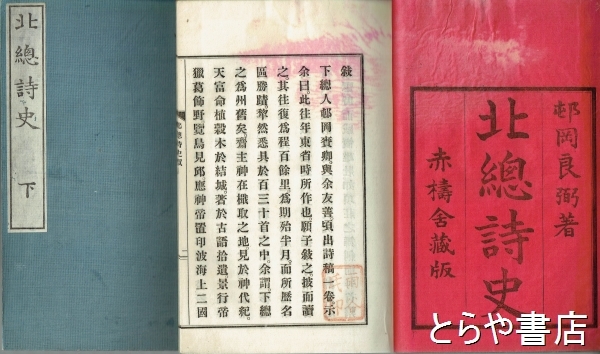 北總詩史
下
敍
下總人邨岡賚卿與余友善頃出詩稿一卷示
余曰此往年東省時所作也願子敍之披而讀
之其往復爲程百餘里爲期殆半月而所歷名
區勝蹟犂然悉具於百三十首之中余謂下總
之爲州舊矣齋主神在檝取之地見於神代紀
天富命植榖木於結城著於古語拾遺景行帝
獵葛飾野覽鳥見邱應神帝置印波海上二國
邨岡良弼著
北總詩史
赤檮舍藏版
とらや書店